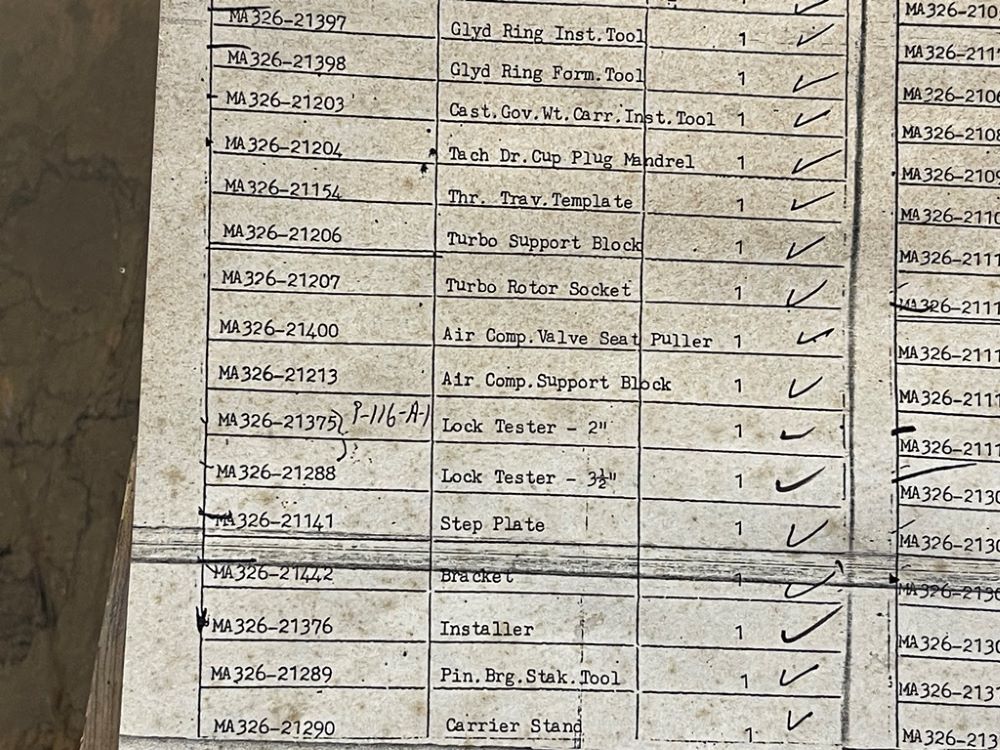 MA326-21397 Glyd Ring Inst.Tool 1 ✓
MA326-21398 Glyd Ring Form.Tool 1 ✓
MA326-21203 Cast.Gov.Wt.Carr.Inst.Tool 1 ✓
MA326-21204 Tach Dr.Cup Plug Mandrel 1 ✓
MA326-21154 Thr. Trav.Template 1 ✓
MA326-21206 Turbo Support Block 1 ✓
MA326-21207 Turbo Rotor Socket 1 ✓
MA326-21400 Air Comp.Valve Seat Puller 1 ✓
MA326-21213 Air Comp.Support Block 1 ✓
MA326-21375 P-116-A-1 Lock Tester - 2" 1 ✓
MA326-21288 Lock Tester - 3½" 1 ✓
MA326-21141 Step Plate 1 ✓
MA326-21442 Bracket 1 ✓
MA326-21376 Installer 1 ✓
MA326-21289 Pin.Brg.Stak.Tool 1 ✓
MA326-21290 Carrier Stand 1 ✓
MA326-210
MA326-211
MA326-2106
MA326-2108
MA326-2109
MA326-2110
MA326-2111
MA326-2111
MA326-2111
MA326-2111
MA326-2111
MA326-2130
MA326-2130
MA326-2130
MA326-2130
MA326-213
MA326-213